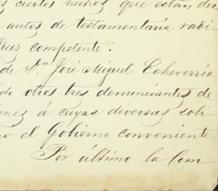 ciertos nuños que están de
autos de testamentaría radi
Juez competente.
de Dn José Miguel Echeverría
de otros tres denunciantes de
ines á cuyas diversas soli
o el Gobierno conveniente
Por último la Com